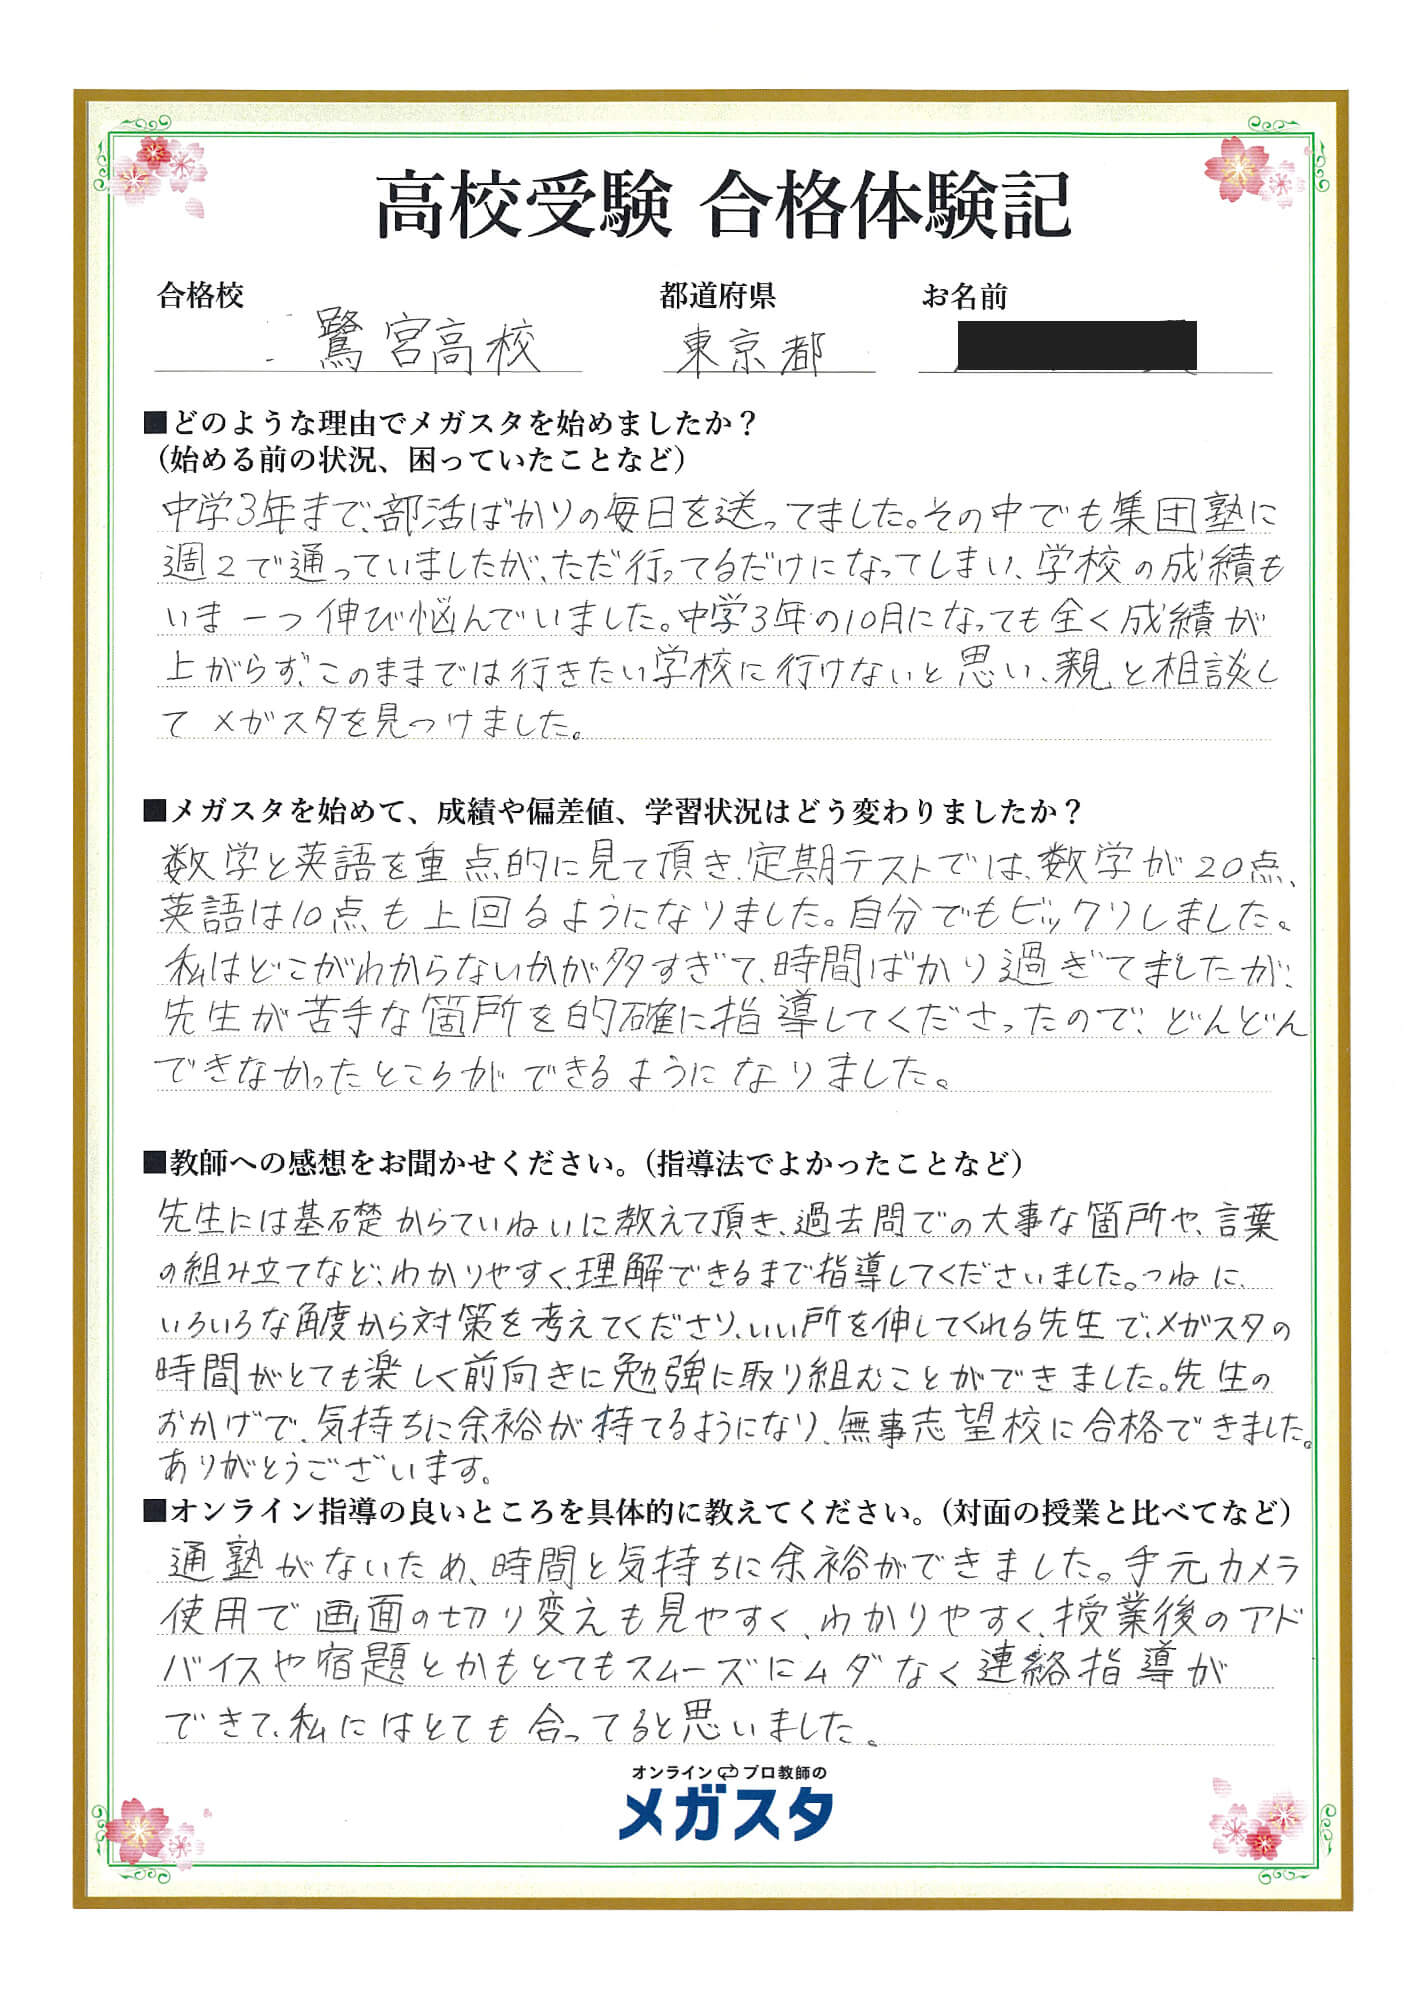 高校受験 合格体験記
合格校 都道府県 お名前
鷺宮高校 東京都
■どのような理由でメガスタを始めましたか？
（始める前の状況、困っていたことなど）
中学3年まで、部活ばかりの毎日を送ってました。その中でも集団塾に
週2で通っていましたが、ただ行ってるだけになってしまい、学校の成績も
いま一つ伸び悩んでいました。中学3年の10月になっても全く成績が
上がらず、このままでは行きたい学校に行けないと思い、親と相談し
てメガスタを見つけました。
■メガスタを始めて、成績や偏差値、学習状況はどう変わりましたか？
数学と英語を重点的に見て頂き、定期テストでは、数学が20点、
英語は10点も上回るようになりました。自分でもビックリしました。
私はどこがわからないかが多すぎて、時間ばかり過ぎてましたが、
先生が苦手な箇所を的確に指導してくださったので、どんどん
できなかったところができるようになりました。
■教師への感想をお聞かせください。（指導法でよかったことなど）
先生には基礎からていねいに教えて頂き、過去問での大事な箇所や、言葉
の組み立てなど、わかりやすく、理解できるまで指導してくださいました。つねに、
いろいろな角度から対策を考えてくださり、いい所を伸してくれる先生で、メガスタの
時間がとても楽しく前向きに勉強に取り組むことができました。先生の
おかげで、気持ちに余裕が持てるようになり、無事志望校に合格できました。
ありがとうございます。
■オンライン指導の良いところを具体的に教えてください。（対面の授業と比べてなど）
通塾がないため、時間と気持ちに余裕ができました。手元カメラ
使用で画面の切り変えも見やすく、わかりやすく、授業後のアド
バイスや宿題とかもとてもスムーズにムダなく連絡指導が
できて、私にはとても合ってると思いました。
オンライン プロ教師の
メガスタ